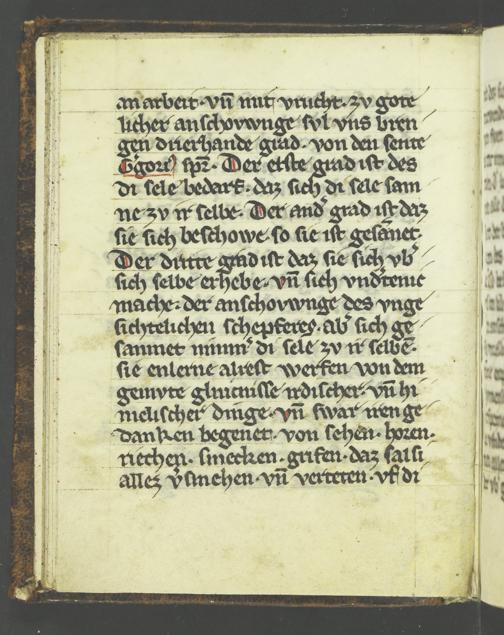 an arbeit · vn̄ mit vrucht · zv gote
licher anschovwnge syl vns bren
gen drierhande grad · von den sente
Ggori⁹ spr̄ · Der erste grad ist des
di sele bedarf · daz sich di sele sam
ne zv ir selbe · Der and͛ grad ist daz
sie sich beschowe so sie ist gesāmet ·
Der dritte grad ist daz sie sich vb͛
sich selbe erhebe · vn̄ sich vnd͛tenic
mache · der anschovwnge des vnge
sichtelichen schepferes · ab͛ sich ge
sammet nimm͛ di sele zv ir selbē ·
sie enlerne alrest werfen von dem
gemvte glnicnisse irdischer · vn̄ hi
melischer dinge · vn̄ swar iren ge
danken begenet · von sehen · horen ·
riechen · smecken · grifen · daz sal si
allez v͛smehen · vn̄ vertreten · vf di